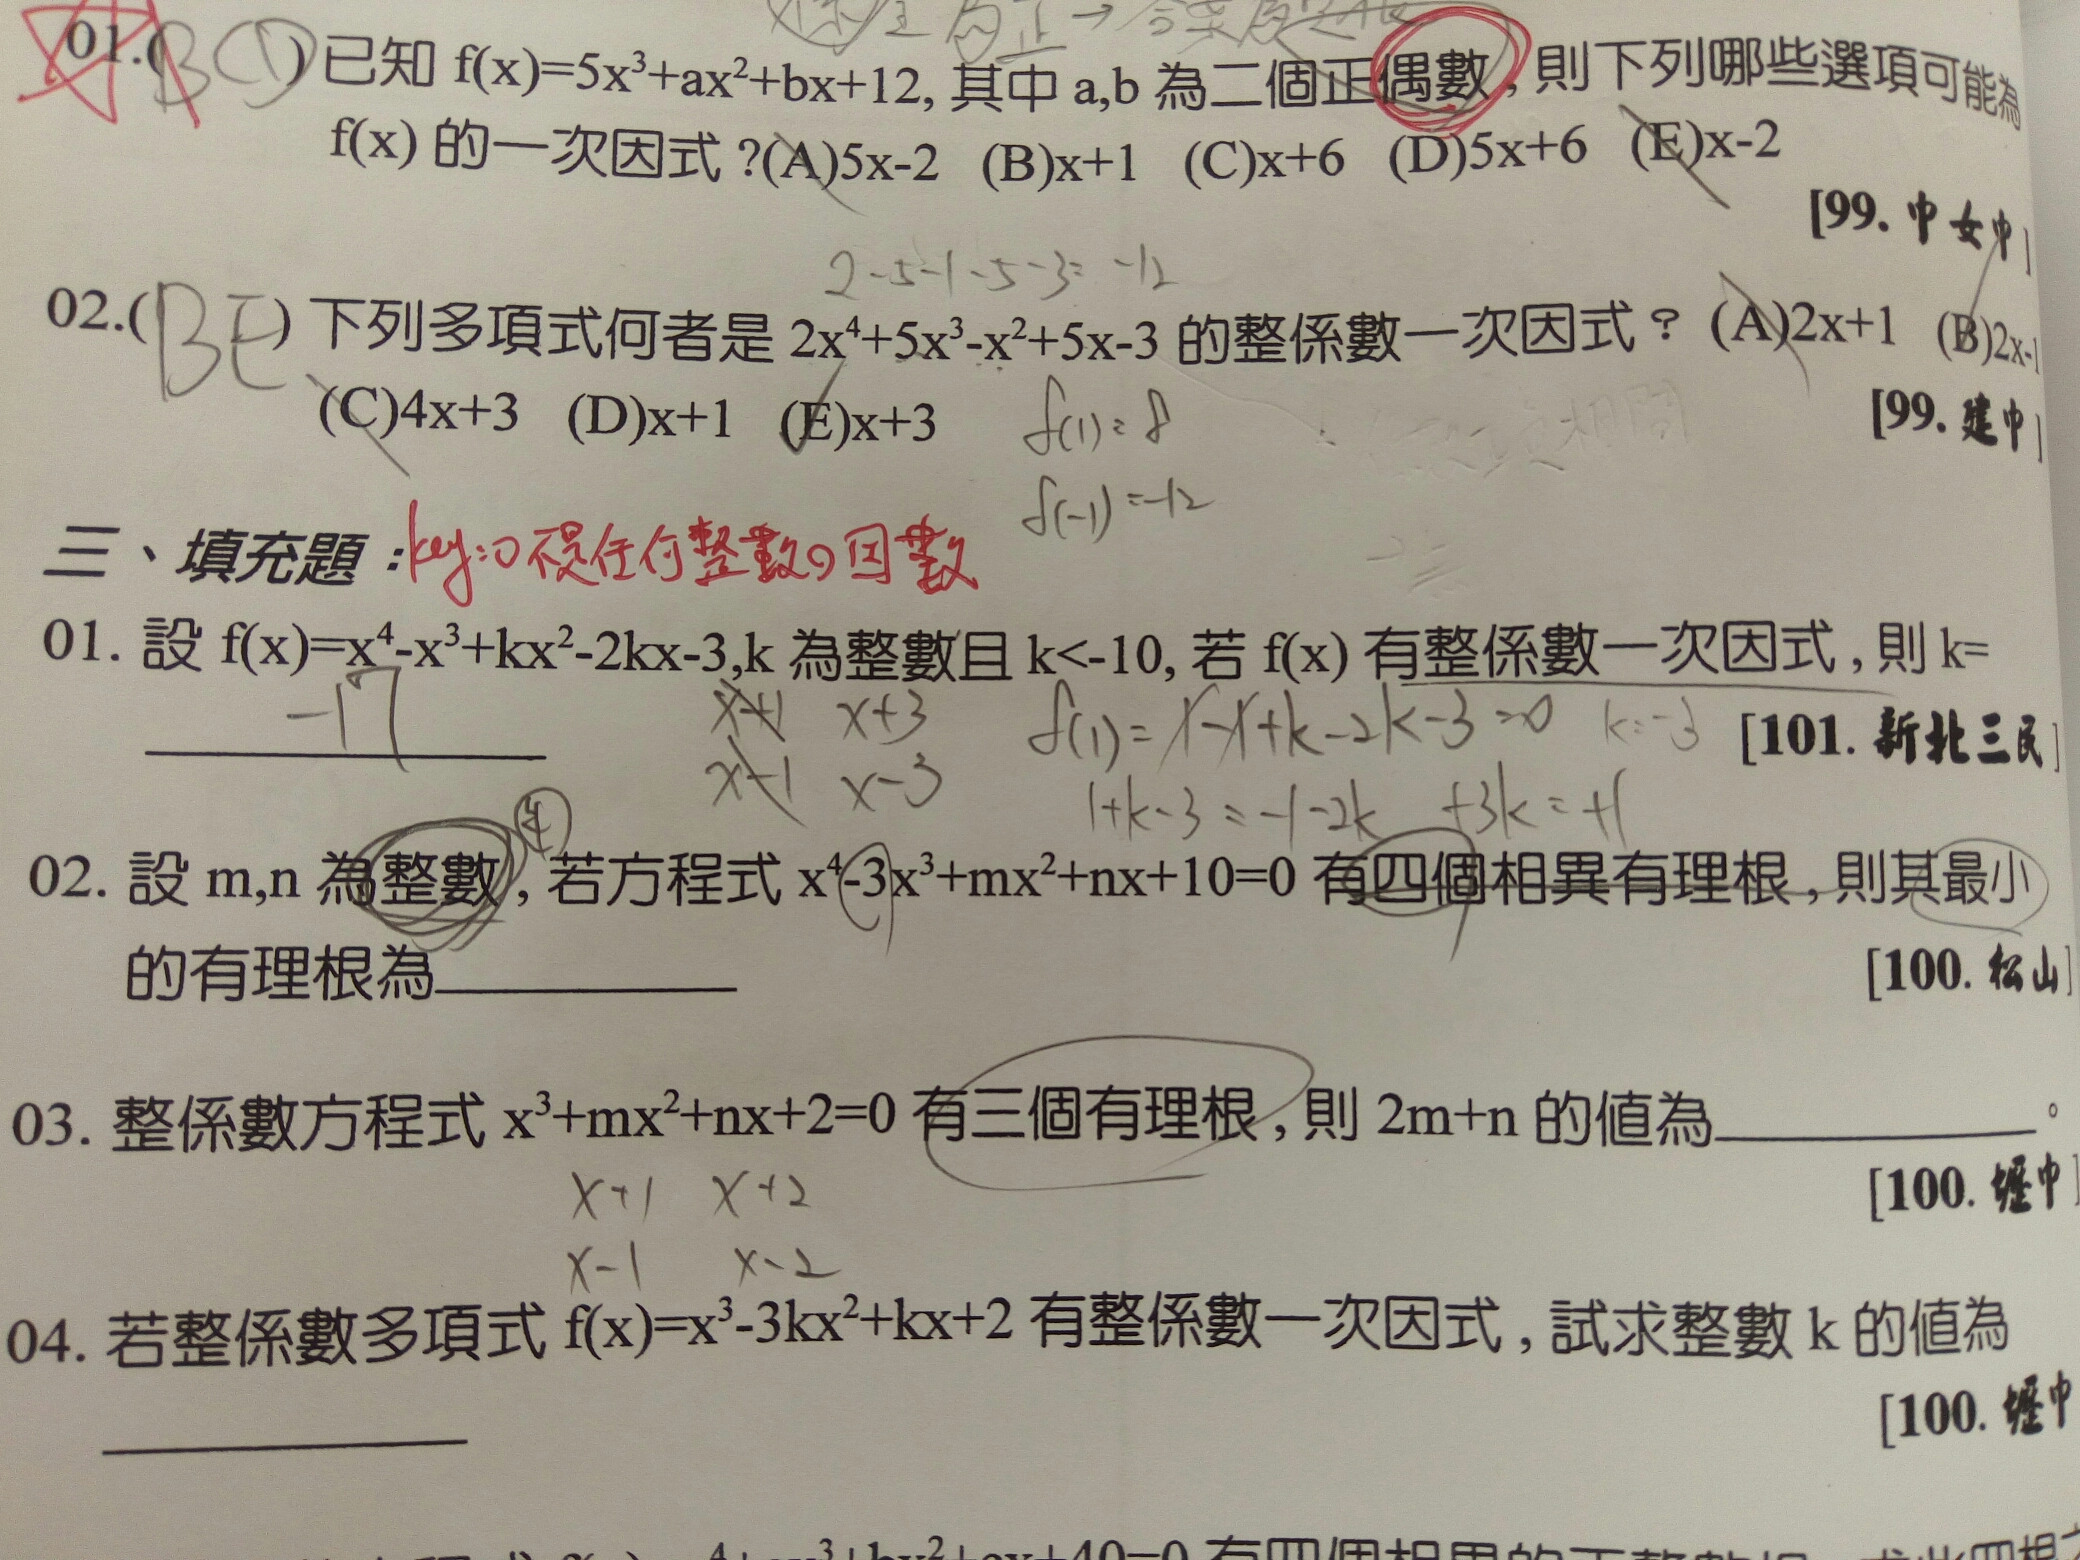 01.(BCD) 已知 f(x)=5x³+ax²+bx+12, 其中 a,b 為二個正偶數, 則下列哪些選項可能為
f(x) 的一次因式?(A)5x-2 (B)x+1 (C)x+6 (D)5x+6 (E)x-2
[99. 中女中]
2-5-1-5-3=-12
02.(BE) 下列多項式何者是 2x⁴+5x³-x²+5x-3 的整係數一次因式? (A)2x+1 (B)2x-1
(C)4x+3 (D)x+1 (E)x+3
[99. 建中]
f(1)=8
f(-1)=-12
三、填充題:key:0不是任何整數の因數
01. 設 f(x)=x⁴-x³+kx²-2kx-3,k 為整數且 k<-10, 若 f(x) 有整係數一次因式, 則 k=
-17
x+1 x+3 f(1)=1-1+k-2k-3=0 k=-3
[101. 新北三民]
x-1 x-3 1+k-3=-1-2k +3k=+1
02. 設 m,n 為整數, 若方程式 x⁴-3x³+mx²+nx+10=0 有四個相異有理根, 則其最小
的有理根為
[100. 松山]
03. 整係數方程式 x³+mx²+nx+2=0 有三個有理根, 則 2m+n 的值為。
[100. 壢中]
x+1 x+2
x-1 x-2
04. 若整係數多項式 f(x)=x³-3kx²+kx+2 有整係數一次因式, 試求整數 k 的值為
[100. 壢中